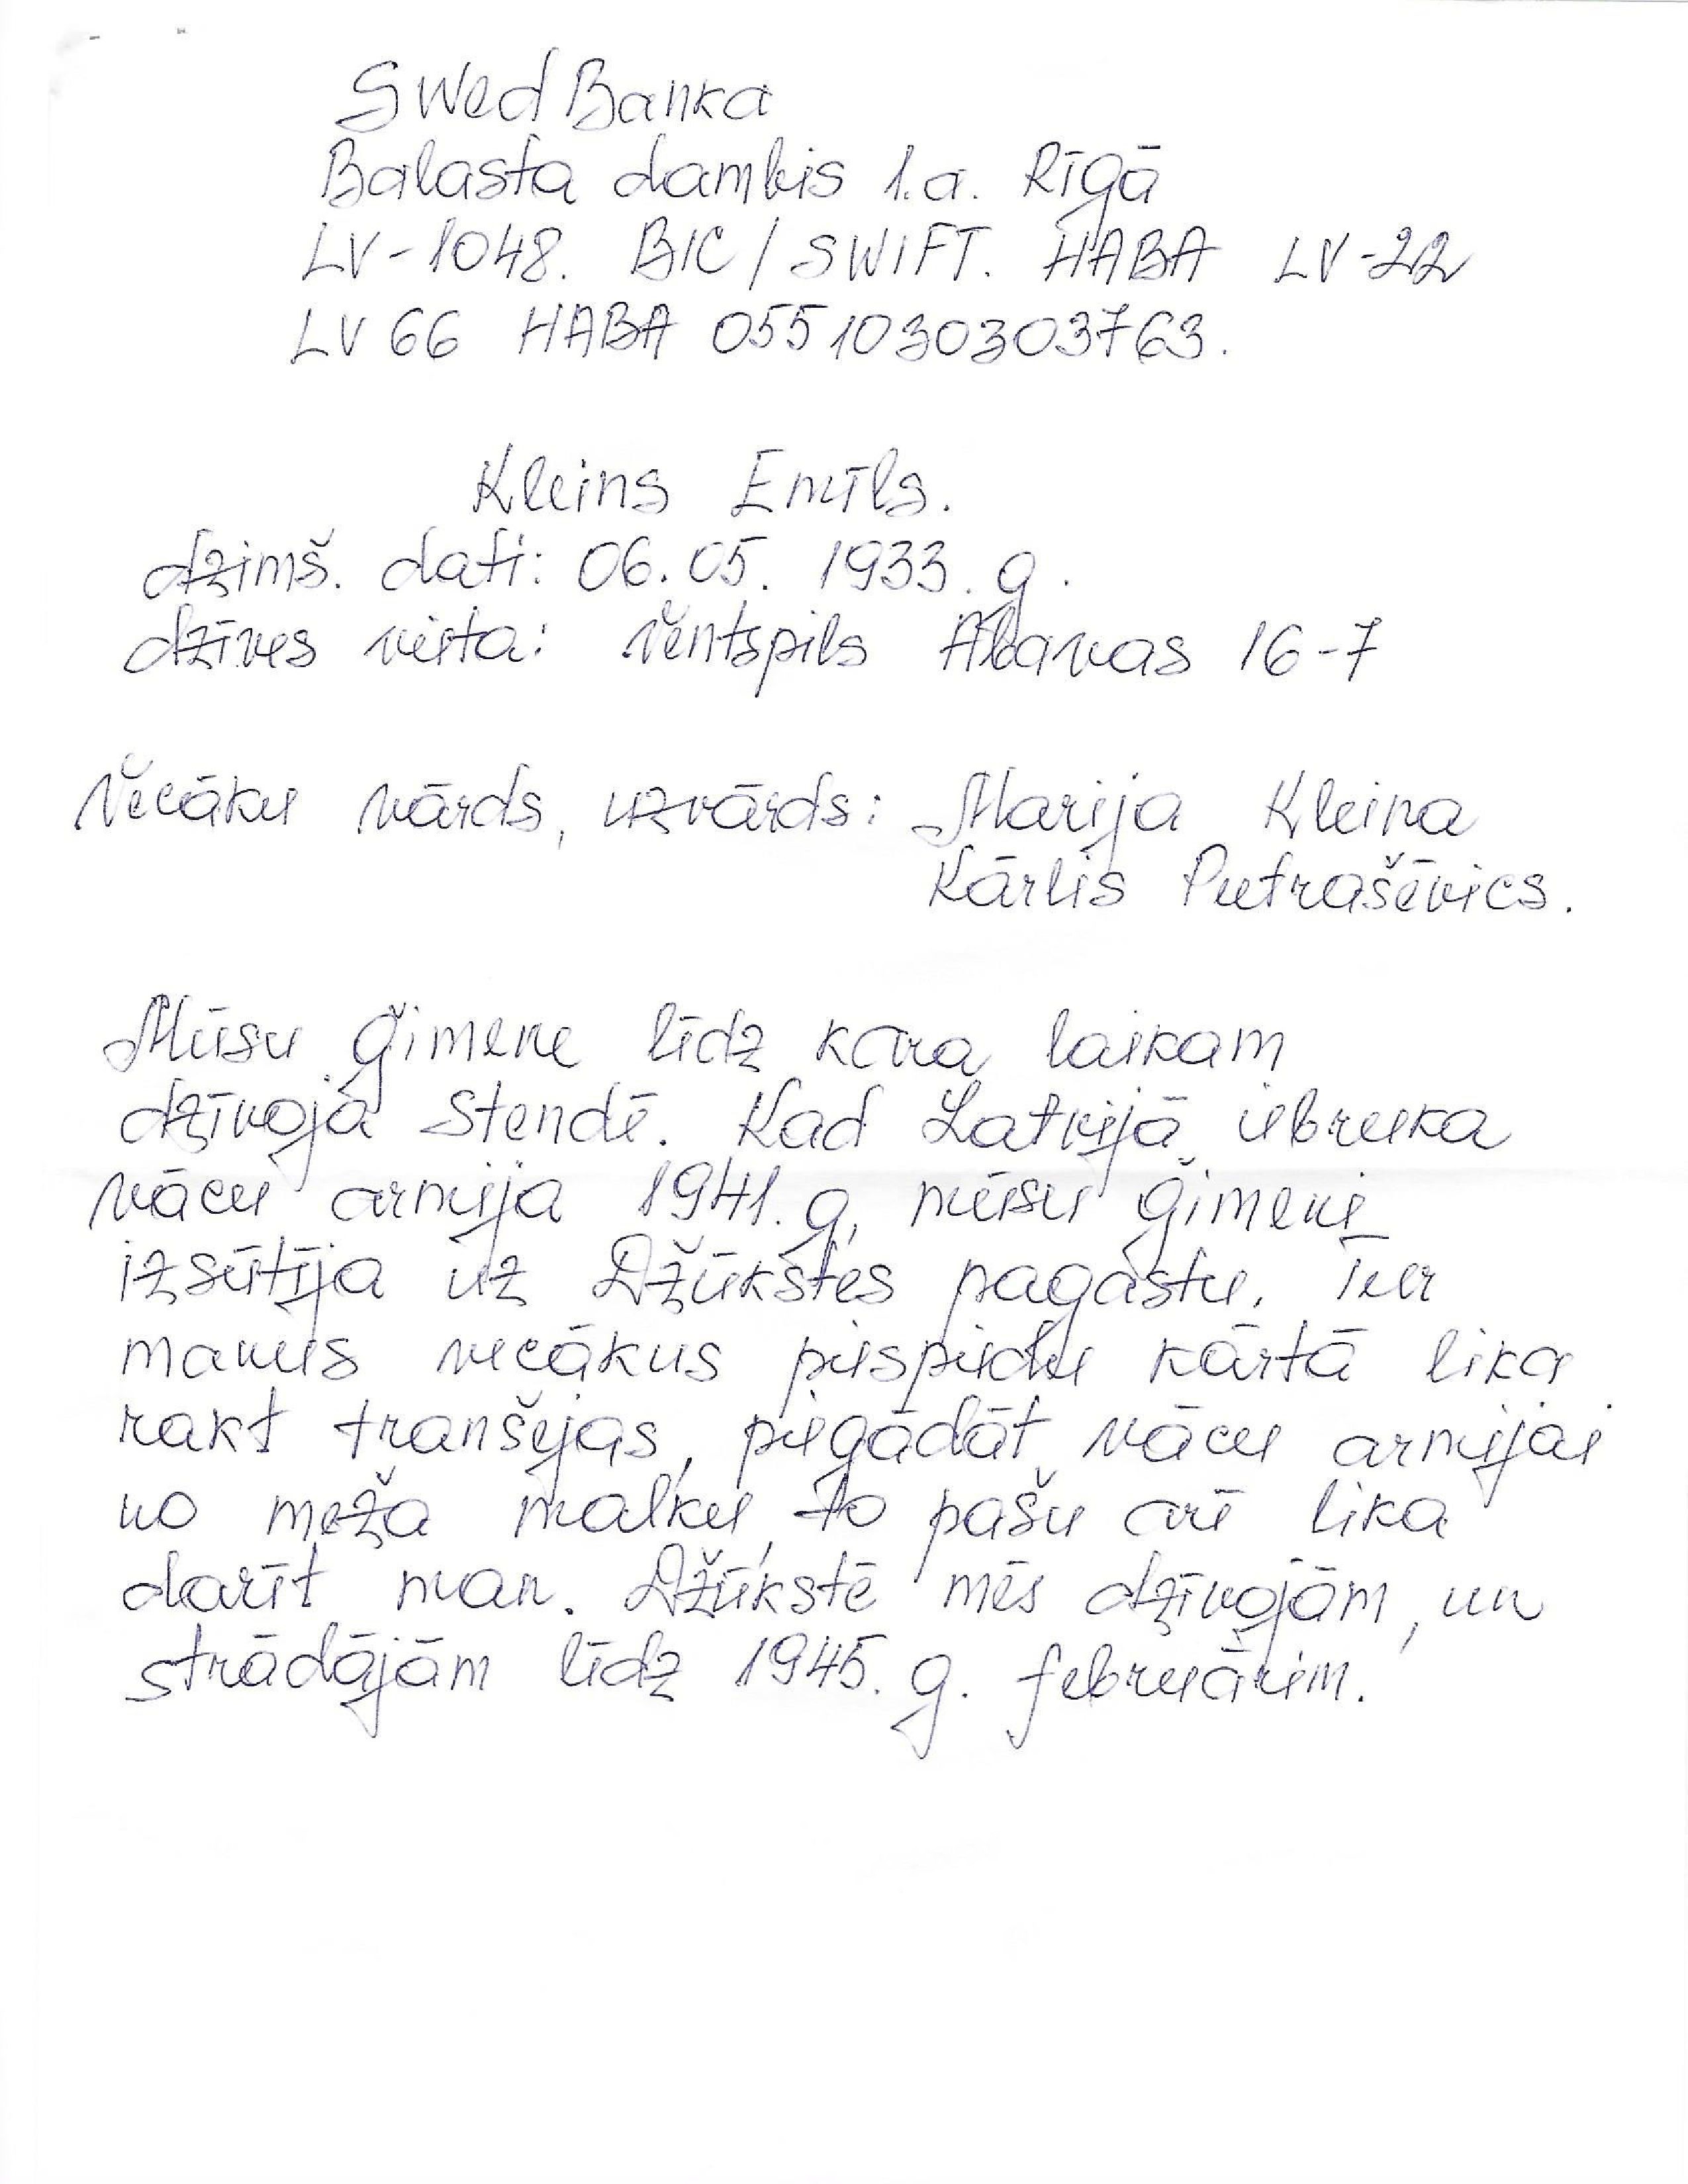 SwedBanka
Balasta dambis 1.a. Rīgā
LV-1048. BIC/SWIFT. HABA LV-22
LV 66 HABA 0551030303763.
Kleins Emīls.
dzimš. dati: 06.05. 1933. g.
dzīves vieta: Ventspils Abavas 16-7
Vecāku vārds, uzvārds: Marija Kleina
Kārlis Pietraševics.
Mūsu ģimene līdz kara laikam
dzīvoja Stendē. Kad Latvijā iebruka
vācu armija 1941. g, mūsu ģimeni
izsūtīja uz Džūkstes pagastu. Tur
manus vecākus piespiedu kārtā lika
rakt tranšejas, piegādāt vācu armijai
no meža malku, to pašu arī lika
darīt man. Džūkstē mēs dzīvojām, un
strādājām līdz 1945. g. februārim.